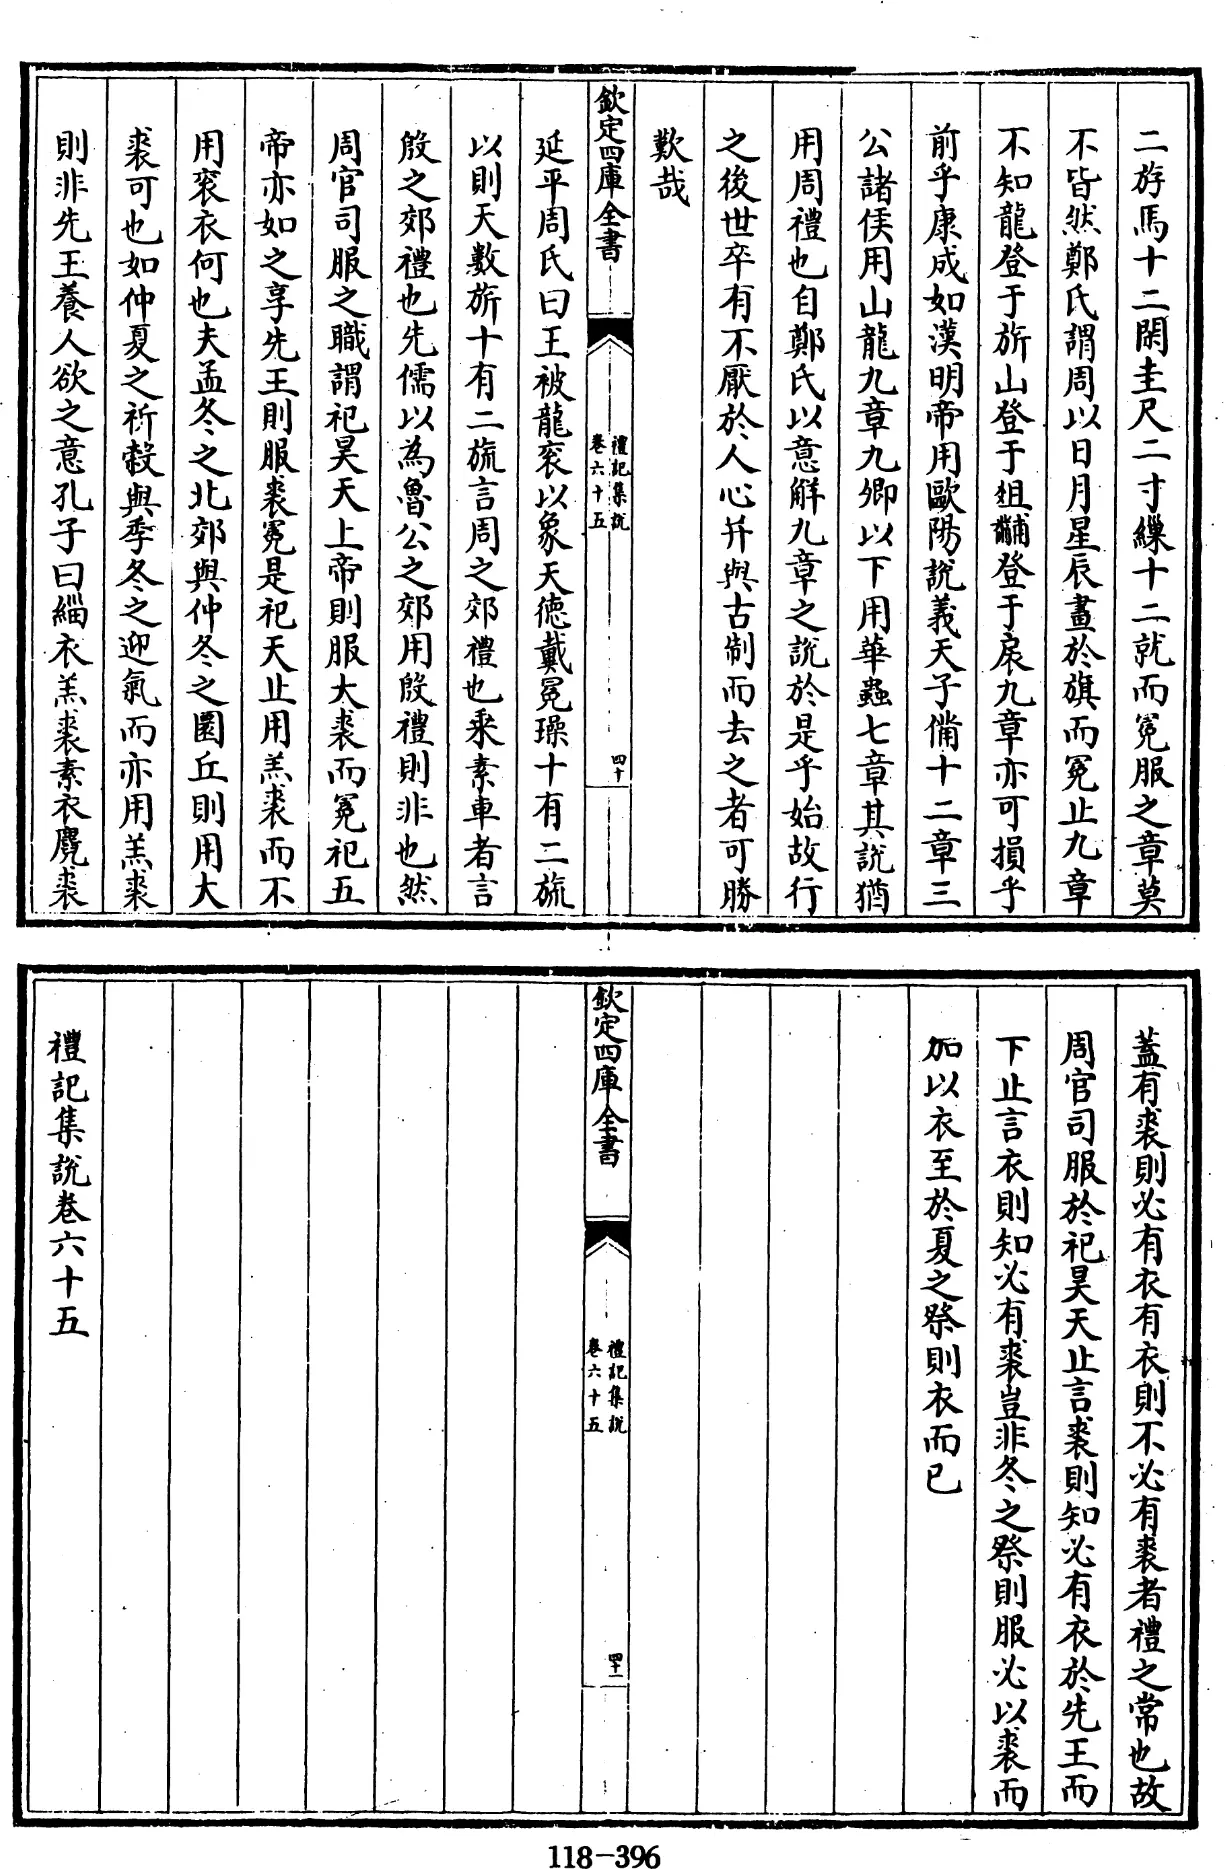 二斿馬十二閑圭尺二寸繅十二就而冕服之章莫
不皆然鄭氏謂周以日月星辰畫於旗而冕止九章
不知龍登于旂山登于俎黼登于扆九章亦可損乎
前乎康成如漢明帝用歐陽說義天子備十二章三
公諸侯用山龍九章九卿以下用華蟲七章其說猶
用周禮也自鄭氏以意解九章之說於是乎始故行
之後世卒有不厭於人心并與古制而去之者可勝
歎哉
欽定四庫全書
禮記集說
卷六十五
四十
延平周氏曰王被龍衮以象天德戴冕璪十有二旒
以則天數旂十有二旒言周之郊禮也乘素車者言
殷之郊禮也先儒以為魯公之郊用殷禮則非也然
周官司服之職謂祀昊天上帝則服大裘而冕祀五
帝亦如之享先王則服裘冕是祀天止用羔裘而不
用衮衣何也夫孟冬之北郊與仲冬之圜丘則用大
裘可也如仲夏之祈穀與季冬之迎氣而亦用羔裘
則非先王養人欲之意孔子曰緇衣羔裘素衣麑裘
蓋有裘則必有衣有衣則不必有裘者禮之常也故
周官司服於祀昊天止言裘則知必有衣於先王而
下止言衣則知必有裘豈非冬之祭則服必以裘而
加以衣至於夏之祭則衣而已
欽定四庫全書
禮記集說
卷六十五
四十一
禮記集說卷六十五
118-396